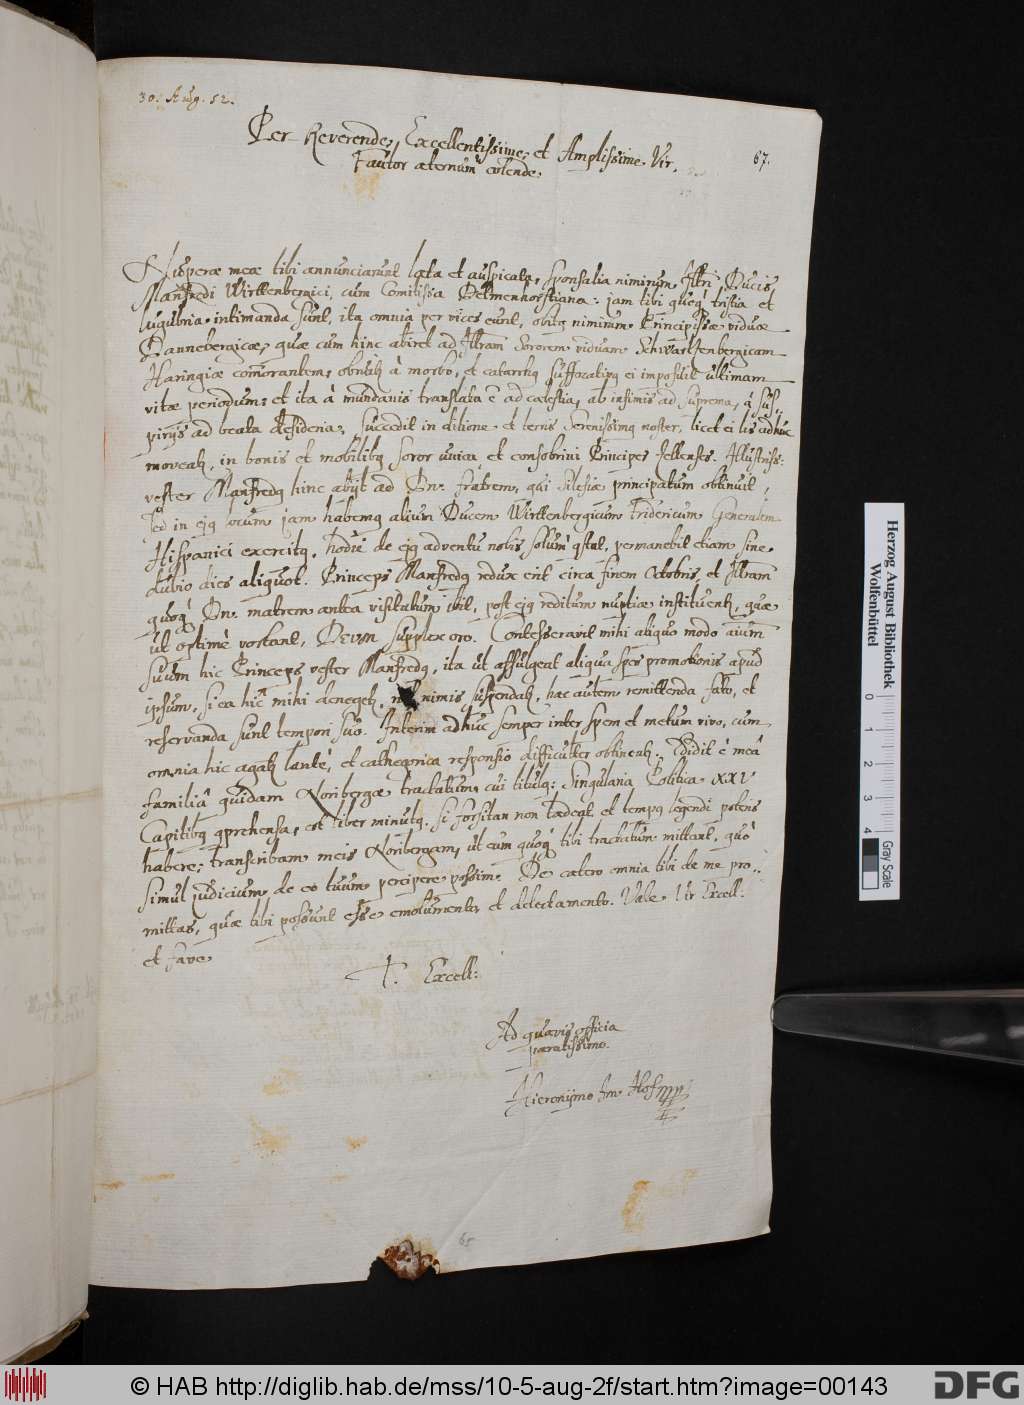 30. Aug. 52.
Per Reverende, Excellentissime, et Amplissime Vir,
67.
Fautor aeternum colende.
Nuperae meae tibi annunciarunt laeta et auspicata, sponsalia nimirum, Illtri Ducis
Manfredi Wirttenbergici, cum Comitissa Delmenhorstiana: jam tibi queq tristia et
lugubria intimanda sunt, ita omnia per vices eunt, obitq nimirum Principissae viduae
Dannebergicae, quae cum hinc abiret ad Illtram Sororem viduam Schwartzenbergicam
Haringiae comorantem, obruitur à morbo, et catarrhq suffocativq ei imposuit ultimam
vitae periodum, et ita à mundanis translata e ad caelestia, ab infimis ad suprema, à sus-
pirijs ad beata desideria. Succedit in ditione et terris Serenissimq noster, licet ei lis adhuc
moveatur, in bonis et mobilibq soror unica et consobrini Principes Iullenses. Illustriss:
vester Manfredq hinc abijt ad Dn. fratrem, qui Silesiae principatum obtinuit,
sed in ejq locum jam habemq alium Ducem Wirttenbergicum Fridericum Generalem
Hispanici exercitq, hodie de ejq adventu nobis solum qstat, permanebit etiam sine
dubio dies aliquot. Princeps Manfredq redux erit circa finem Octobris, et Illtram
quoq Dn. matrem antea visitatum ibit, post ejq reditum nuptiae instituentur, quae
ut optimè vertant, Deum supplex oro. Contesseravit mihi aliquo modo animum
suum hic Princeps vester Manfredq, ita ut affulgeat aliqua spes promotionis apud
ipsum, si ea hic mihi denegetur, nimis suspendatur, hac autem remittenda fato, et
reservanda sunt tempori suo. Interim adhuc semper inter spem et metum vivo, cum
omnia hic agatur lentè, et cathegorica responsio difficulter obtineatur. Edidit è meâ
familiâ quidam Noribergae tractatum, cui titulq: Singularia Politica XXV
Capitibq qprehensa, est liber minutq. si forsitan non taedeat et tempq legendi poteris
habere; transcribam meis Noribergam, ut eum quoq tibi tractatum mittant, quò
simul judicium de eo tuum percipere possim. De caetero omnia tibi de me pro-
mittas, quae tibi possunt esse emolumento, et delectamento. Vale Vir Excell:
et fave
T. Excell:
Ad quaevis officia
paratissimo
Hieronymo Im Hof
65
Herzog August Bibliothek
Wolfenbüttel
0 1 2 3 4
Gray Scale
© HAB http://diglib.hab.de/mss/10-5-aug-2f/start.htm?image=00143
DFG